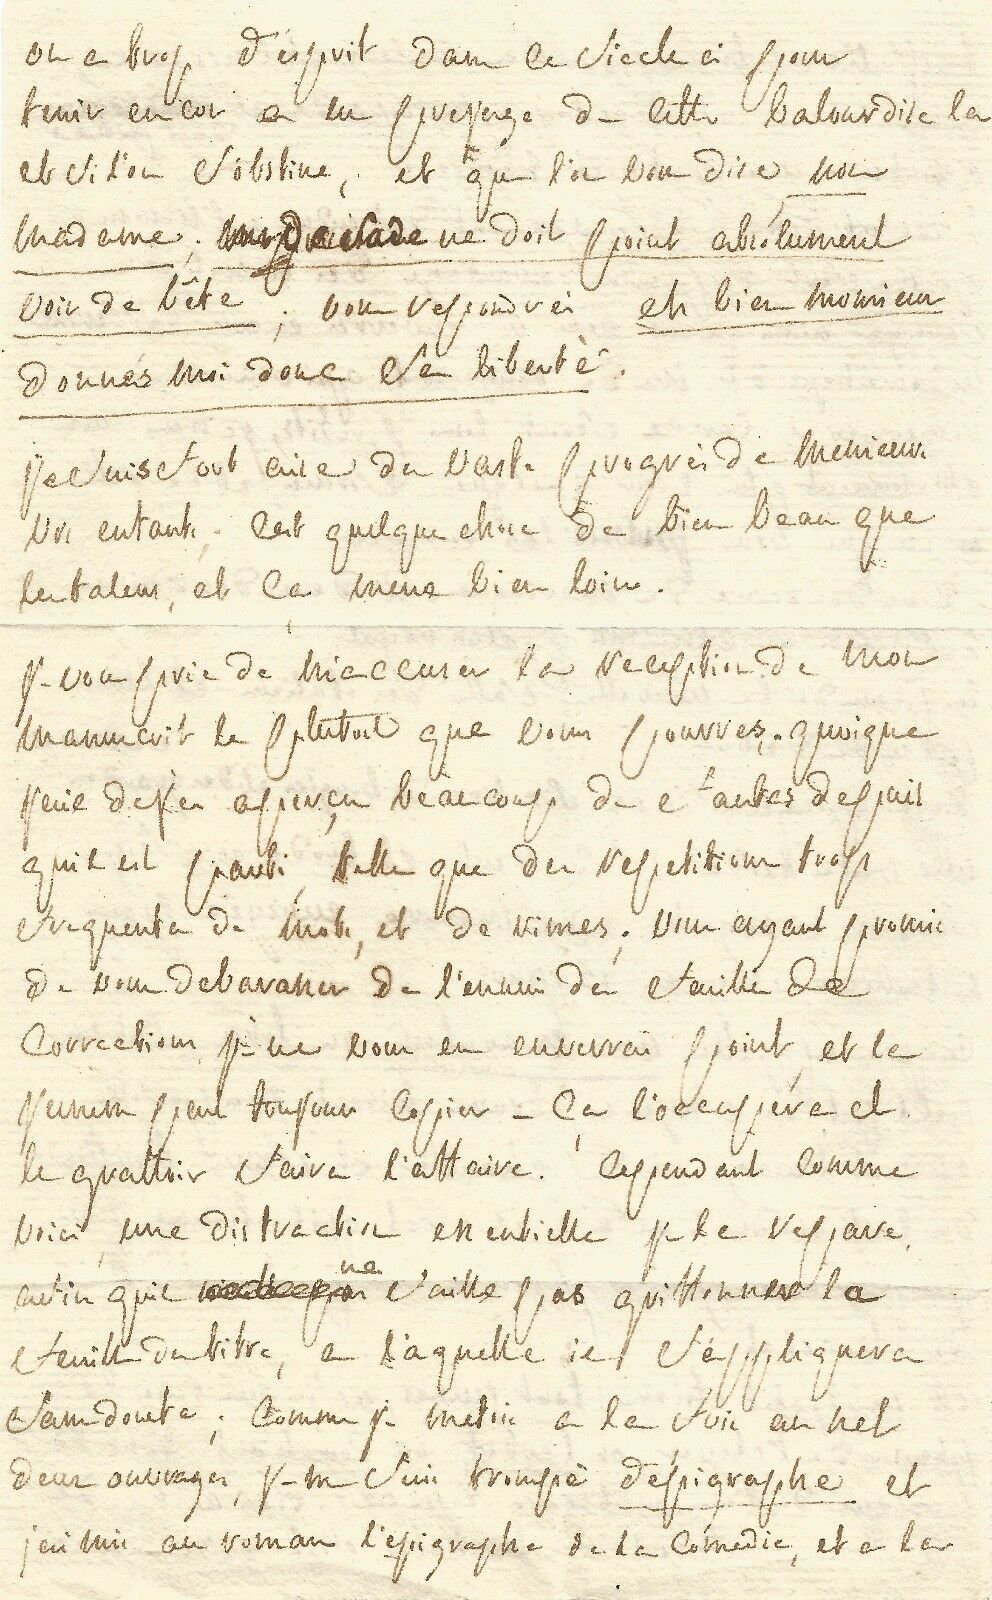 on a trop d'esprit dans ce siecle ci pour
tenir encor a un prejugé de cette balourdise la
et si l'on s'obstine, et que l'on vous dise, non
madame, mr de sade ne doit point absolument
voir de bête; vous respondrés eh bien monsieur
donnés moi donc sa liberté.
je suis fort aise du vaste progrès de messieurs
vos enfants, c'est quelque chose de bien beau que
les talens, et ça mene bien loin.
je vous prie de m'accuser la reception de mon
manuscrit le plutost que vous pourrés, quoique
j'eie deja aperçu beaucoup de fautes depuis
quil est parti, telle que des respetitions trop
frequentes de mots, et de rimes; vous ayant promis
de vous debarasser de l'ennui des feuilles de
corrections je ne vous en enverrai point, et le
jeunes peut toujours copier - ça l'occupera et
le grattoir faira l'affaire. cependant comme
voici une distraction essentielle je la respare,
afin quil ne faille pas griffonner la
feuille du titre, a laquelle il s'appliquera
sans doute; comme je metois a la fois au net
deux ouvrages, je me suis trompé d'épigraphe et
jai mis au roman l'epigraphe de la comedie, et a la